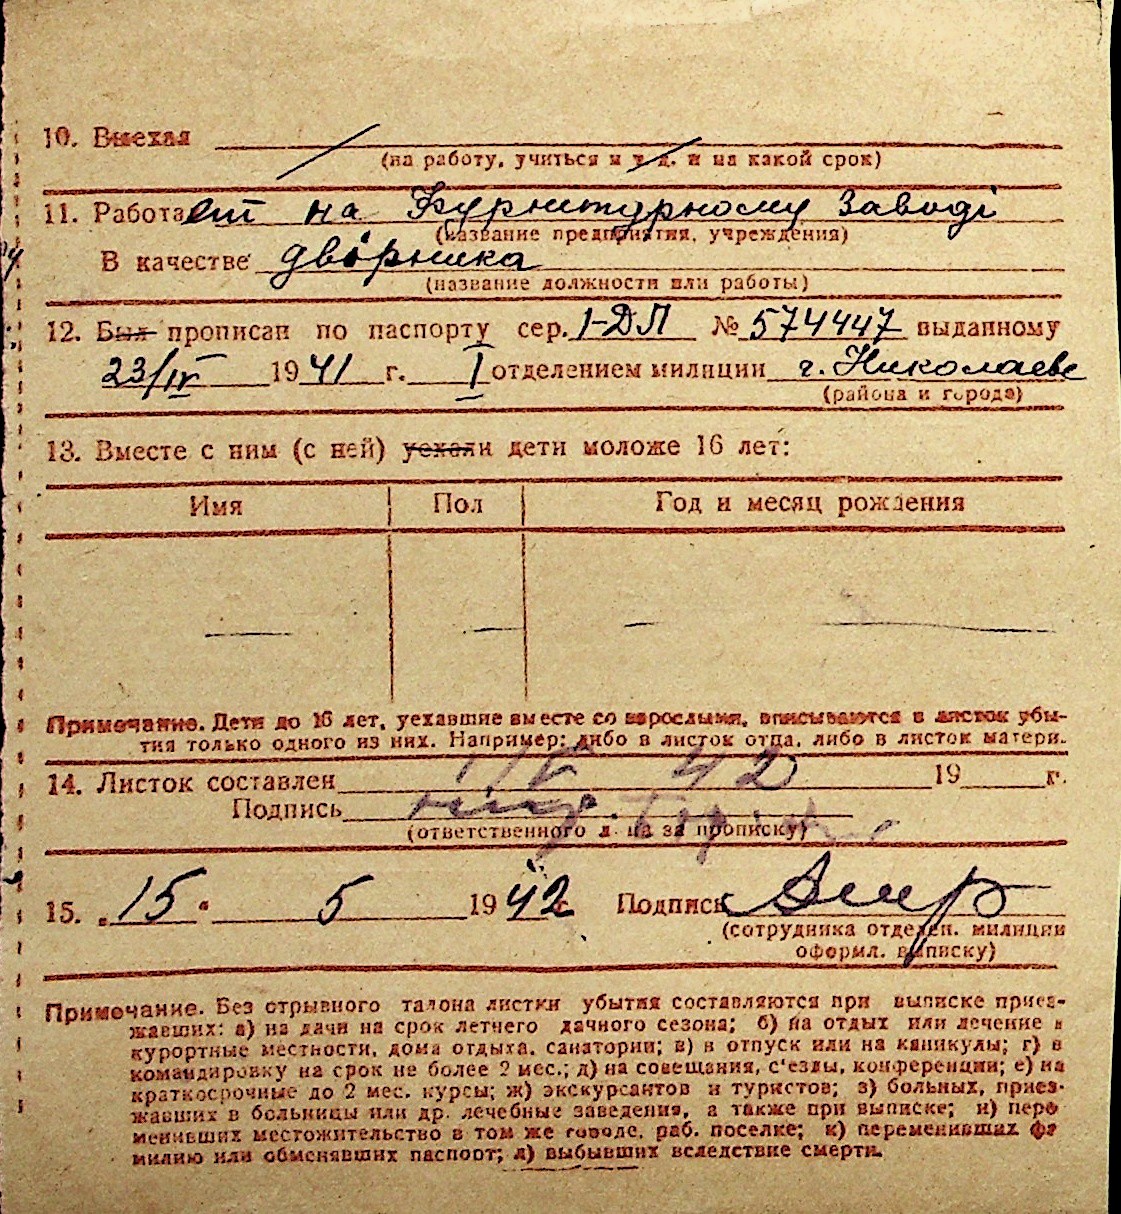 10. Выехал
(на работу, учиться и т. д. и на какой срок)
11. Работает на Фурнитурному заводі
(название предприятия, учреждения)
В качестве двірника
(название должности или работы)
12. Был прописан по паспорту сер. I-ДЛ № 574447 выданному
23/IV 1941 г. I отделением милиции г. Николаеве
(района и города)
13. Вместе с ним (с ней) уехали дети моложе 16 лет:
Имя Пол Год и месяц рождения
Примечание. Дети до 16 лет, уехавшие вместе со взрослыми, вписываются в листок убы-
тия только одного из них. Например: либо в листок отца, либо в листок матери.
14. Листок составлен 42 19 г.
Подпись
(ответственного л на за прописку)
15. „15“ 5 1942 г. Подпись
(сотрудника отделен. милиции
оформл. выписку)
Примечание. Без отрывного талона листки убытия составляются при выписке приез-
жавших: а) на дачи на срок летнего дачного сезона; б) на отдых или лечение в
курортные местности, дома отдыха, санатории; в) в отпуск или на каникулы; г) в
командировку на срок не более 2 мес.; д) на совещания, с'езды, конференции; е) на
краткосрочные до 2 мес. курсы; ж) экскурсантов и туристов; з) больных, приез-
жавших в больницы или др. лечебные заведения, а также при выписке; и) пере
менивших местожительство в том же городе, раб. поселке; к) переменивших фа
милию или обменявших паспорт; л) выбывших вследствие смерти.